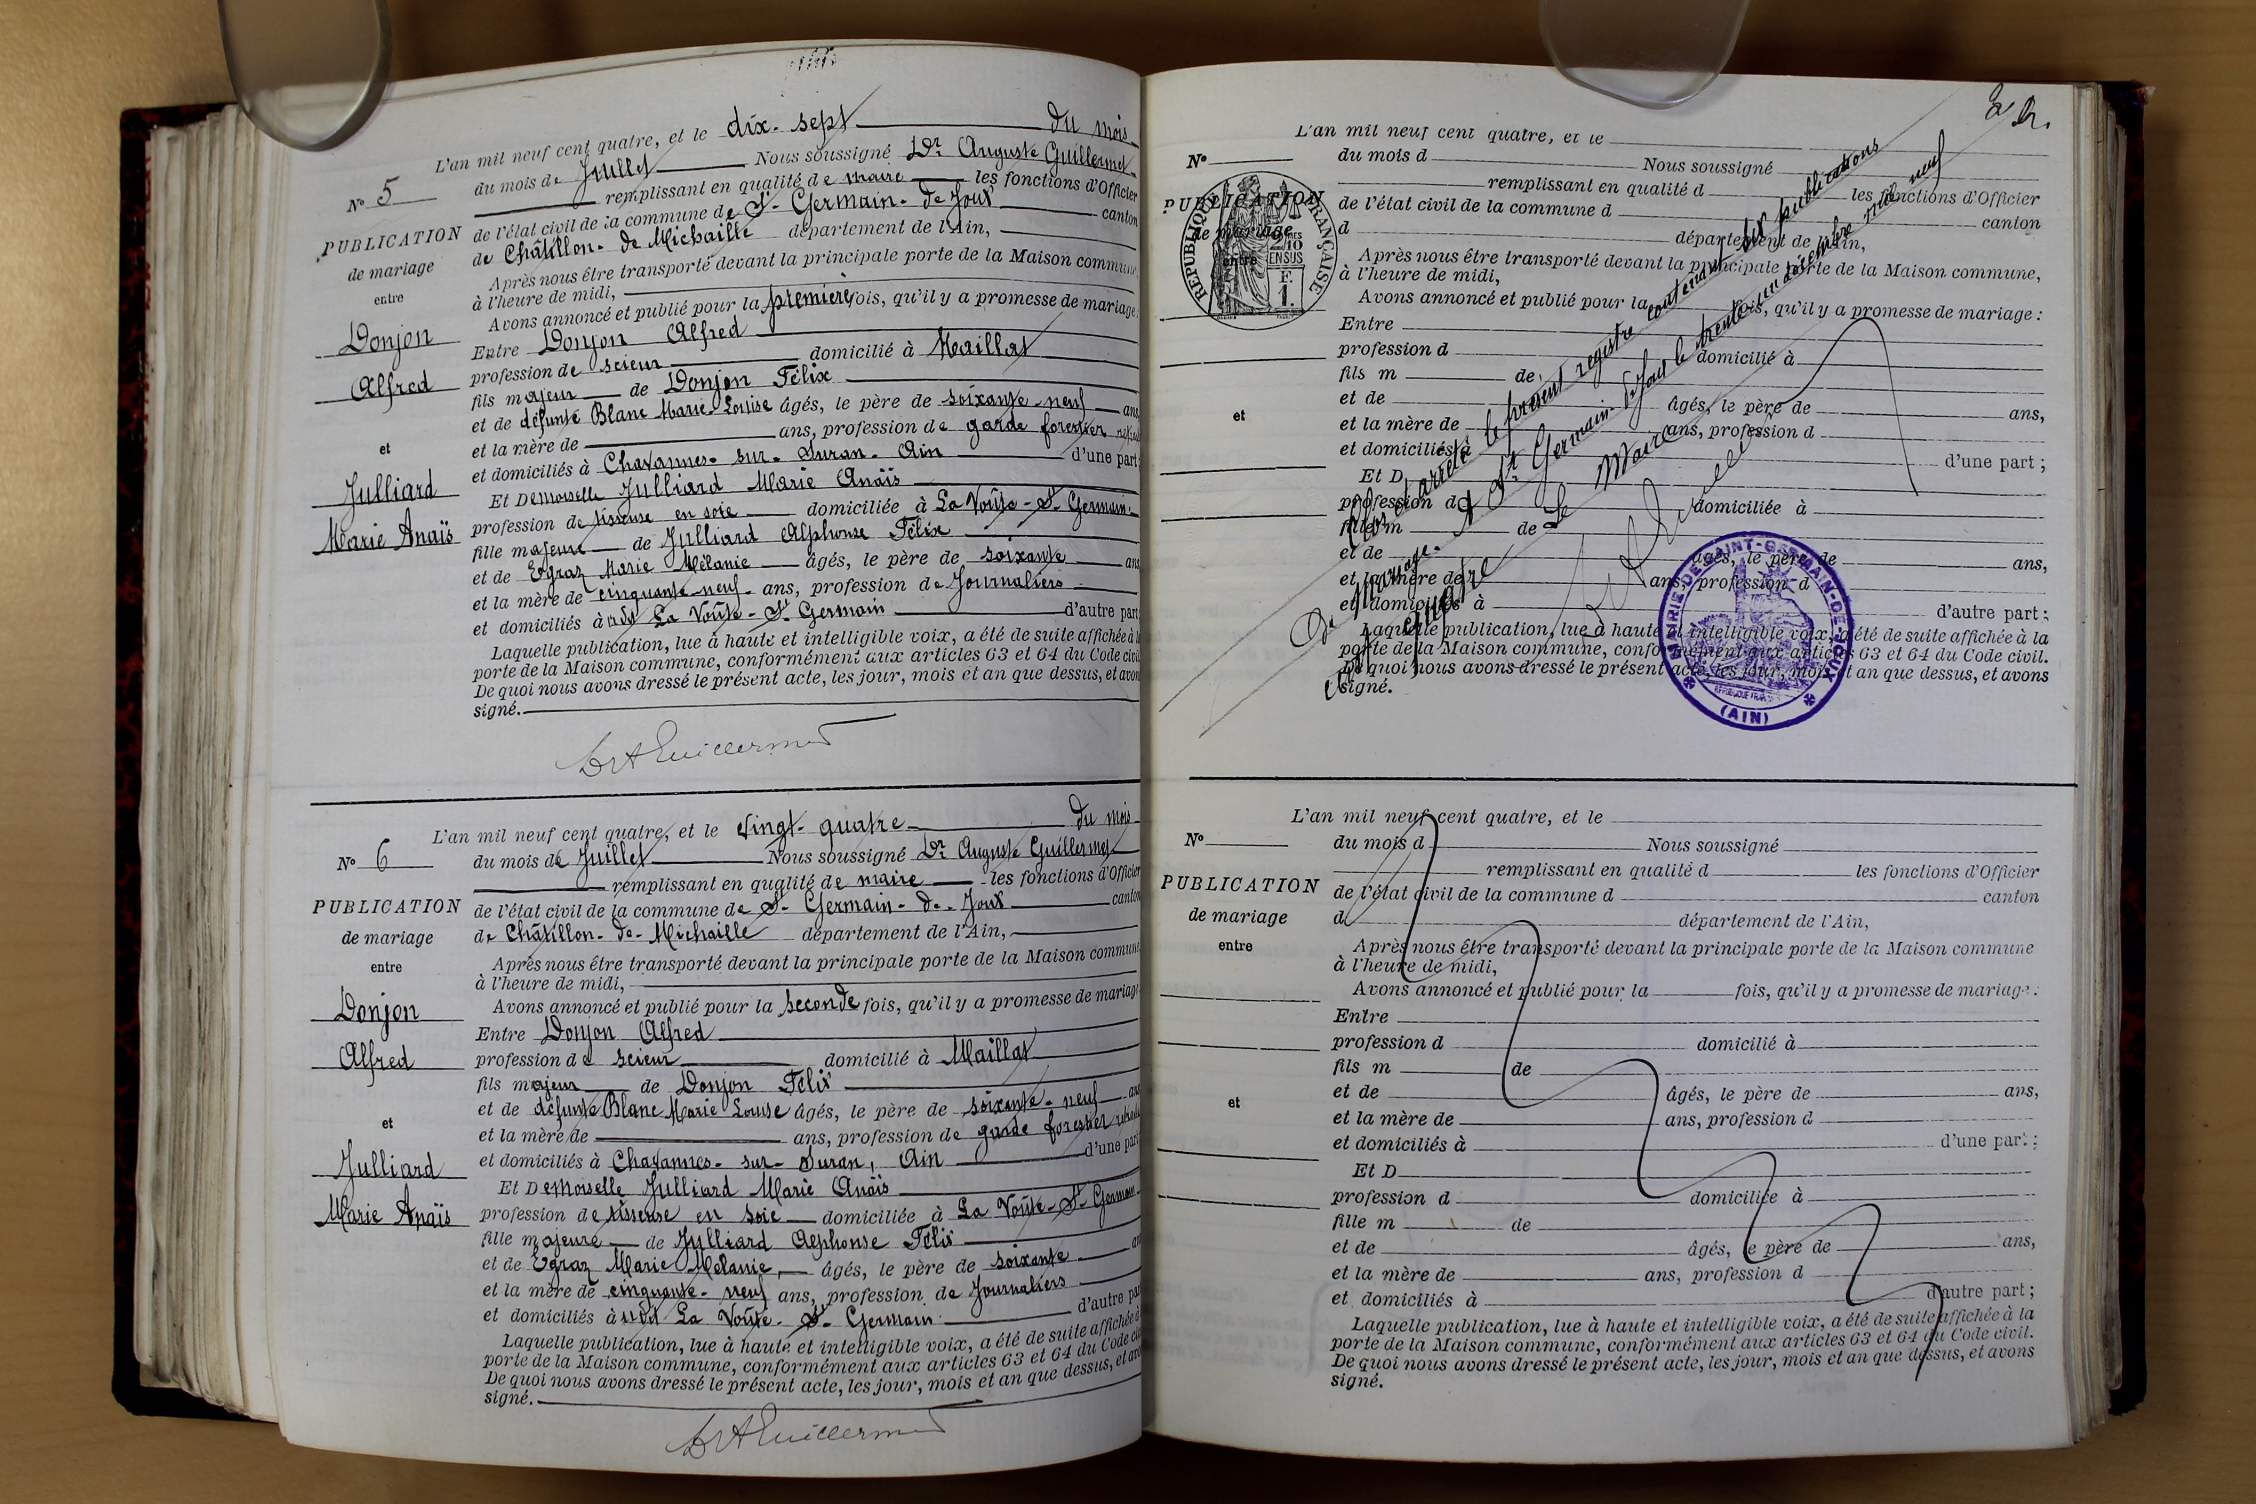 L'an mil neuf cent quatre, et le dix-sept du mois
du mois de Juillet Nous soussigné Dr Auguste Guillermet
remplissant en qualité de maire les fonctions d'Officier
de l'état civil de la commune de St Germain-de-Joux canton
de Châtillon-de-Michaille département de l'Ain,
Après nous être transporté devant la principale porte de la Maison commune,
à l'heure de midi,
Avons annoncé et publié pour la première fois, qu'il y a promesse de mariage :
Entre Donjon Alfred
profession de scieur domicilié à Maillat
fils majeur de Donjon Félix
et de défunte Blanc Marie-Louise âgés, le père de soixante-neuf ans
et la mère de ans, profession de garde forestier retraité
et domiciliés à Chavannes-sur-Suran-Ain d'une part ;
Et Demoiselle Julliard Marie Anaïs
profession de tisseuse en soie domiciliée à La Voûte-St Germain
fille majeure de Julliard Alphonse Félix
et de Egraz Marie Mélanie âgés, le père de soixante ans
et la mère de cinquante-neuf ans, profession de Journaliers
et domiciliés à La Voûte-St Germain d'autre part
Laquelle publication, lue à haute et intelligible voix, a été de suite affichée à la
porte de la Maison commune, conformément aux articles 63 et 64 du Code civil
De quoi nous avons dressé le présent acte, les jour, mois et an que dessus, et avons
signé.
Dr A Guillermet
N° 5
PUBLICATION
de mariage
entre
Donjon
Alfred
et
Julliard
Marie Anaïs
L'an mil neuf cent quatre, et le vingt-quatre du mois
du mois de Juillet Nous soussigné Dr Auguste Guillermet
remplissant en qualité de maire les fonctions d'Officier
de l'état civil de la commune de St Germain-de-Joux canton
de Châtillon-de-Michaille département de l'Ain,
Après nous être transporté devant la principale porte de la Maison commune
à l'heure de midi,
Avons annoncé et publié pour la seconde fois, qu'il y a promesse de mariage
Entre Donjon Alfred
profession de scieur domicilié à Maillat
fils majeur de Donjon Félix
et de défunte Blanc Marie Louise âgés, le père de soixante-neuf ans
et la mère de ans, profession de garde forestier retraité
et domiciliés à Chavannes-sur-Suran, Ain d'une part
Et Demoiselle Julliard Marie Anaïs
profession de tisseuse en soie domiciliée à La Voûte-St Germain
fille majeure de Julliard Alphonse Félix
et de Egraz Marie Mélanie, âgés, le père de soixante ans
et la mère de cinquante-neuf ans, profession de Journaliers
et domiciliés à La Voûte-St Germain d'autre part
Laquelle publication, lue à haute et intelligible voix, a été de suite affichée à
porte de la Maison commune, conformément aux articles 63 et 64 du Code civil
De quoi nous avons dressé le présent acte, les jour, mois et an que dessus, et avons
signé.
Dr A Guillermet
N° 6
PUBLICATION
de mariage
entre
Donjon
Alfred
et
Julliard
Marie Anaïs
L'an mil neuf cent quatre, et le
du mois d Nous soussigné
remplissant en qualité d les fonctions d'Officier
de l'état civil de la commune d canton
d département de l'Ain,
Après nous être transporté devant la principale porte de la Maison commune,
à l'heure de midi,
Avons annoncé et publié pour la fois, qu'il y a promesse de mariage :
Entre
profession d domicilié à
fils m de
et de âgés, le père de ans,
et la mère de ans, profession d
et domiciliés à d'une part ;
Et D
profession d domiciliée à
fille m de
et de âgés, le père de ans,
et la mère de ans, profession d
et domiciliés à d'autre part ;
Laquelle publication, lue à haute et intelligible voix, a été de suite affichée à la
porte de la Maison commune, conformément aux articles 63 et 64 du Code civil.
De quoi nous avons dressé le présent acte, les jour, mois et an que dessus, et avons
signé.
N°
PUBLICATION
de mariage
entre
et
RÉPUBLIQUE FRANÇAISE
2/10
EN SUS
1 F.
Clos et arrêté le présent registre contenant six publications
de Mariage. A St Germain-de-Joux le trente-un décembre mil neuf
cent quatre Le Maire
MAIRIE DE SAINT-GERMAIN-DE-JOUX
(AIN)
L'an mil neuf cent quatre, et le
du mois d Nous soussigné
remplissant en qualité d les fonctions d'Officier
de l'état civil de la commune d canton
d département de l'Ain,
Après nous être transporté devant la principale porte de la Maison commune
à l'heure de midi,
Avons annoncé et publié pour la fois, qu'il y a promesse de mariage :
Entre
profession d domicilié à
fils m de
et de âgés, le père de ans,
et la mère de ans, profession d
et domiciliés à d'une part ;
Et D
profession d domiciliée à
fille m de
et de âgés, le père de ans,
et la mère de ans, profession d
et domiciliés à d'autre part ;
Laquelle publication, lue à haute et intelligible voix, a été de suite affichée à la
porte de la Maison commune, conformément aux articles 63 et 64 du Code civil.
De quoi nous avons dressé le présent acte, les jour, mois et an que dessus, et avons
signé.
N°
PUBLICATION
de mariage
entre
et